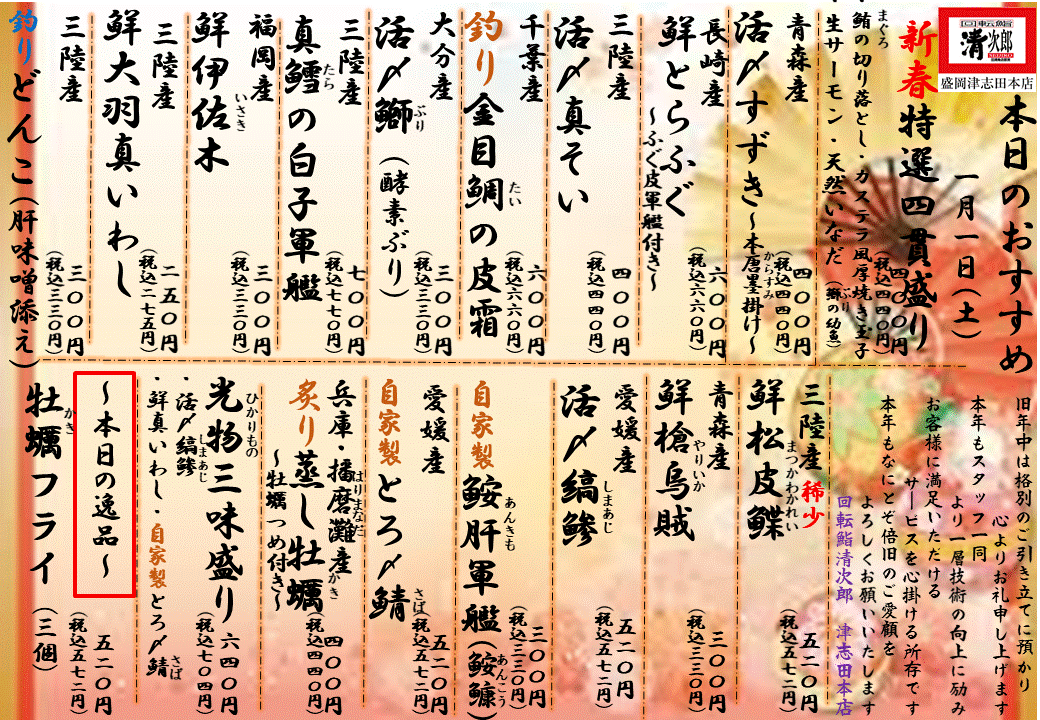 回転鮨
清次郎
盛岡津志田本店
本日のおすすめ
一月一日(土)
新春特選四貫盛り
四〇〇円
(税込四四〇円)
まぐろ
・鮪の切り落とし・カステラ風厚焼き玉子
・生サーモン・天然いなだ(鰤の幼魚)
ぶり
青森産
活〆すずき~本唐墨掛け~
からすみ
四〇〇円
(税込四四〇円)
長崎産
鮮とらふぐ
~ふぐ皮軍艦付き~
六〇〇円
(税込六六〇円)
三陸産
活〆真そい
四〇〇円
(税込四四〇円)
千葉産
釣り金目鯛の皮霜
たい
六〇〇円
(税込六六〇円)
大分産
活〆鰤(酵素ぶり)
ぶり
三〇〇円
(税込三三〇円)
三陸産
真鱈の白子軍艦
たら
七〇〇円
(税込七七〇円)
福岡産
鮮伊佐木
いさき
三〇〇円
(税込三三〇円)
三陸産
鮮大羽真いわし
二五〇円
(税込二七五円)
三陸産
釣りどんこ(肝味噌添え)
三〇〇円
(税込三三〇円)
旧年中は格別のご引き立てに預かり
心よりお礼申し上げます
本年もスタッフ一同
より一層技術の向上に励み
お客様に満足いただける
サービスを心掛ける所存です
本年もなにとぞ倍旧のご愛顧を
よろしくお願いいたします
回転鮨清次郎 津志田本店
三陸産 稀少
鮮松皮鰈
まつかわかれい
五二〇円
(税込五七二円)
青森産
鮮槍烏賊
やりいか
三〇〇円
(税込三三〇円)
愛媛産
活〆縞鯵
しまあじ
五二〇円
(税込五七二円)
自家製 鮟肝軍艦(鮟鱇)
あんきも
あんこう
三〇〇円
(税込三三〇円)
愛媛産
自家製 とろ〆鯖
さば
五二〇円
(税込五七二円)
兵庫・播磨灘産
はりまなだ
炙り蒸し牡蠣
かき
~牡蠣つめ付き~
四〇〇円
(税込四四〇円)
光物三味盛り
ひかりもの
六四〇円
(税込七〇四円)
・活〆縞鯵
しまあじ
・鮮真いわし・自家製とろ〆鯖
さば
~本日の逸品~
牡蠣フライ(三個)
かき
五二〇円
(税込五七二円)